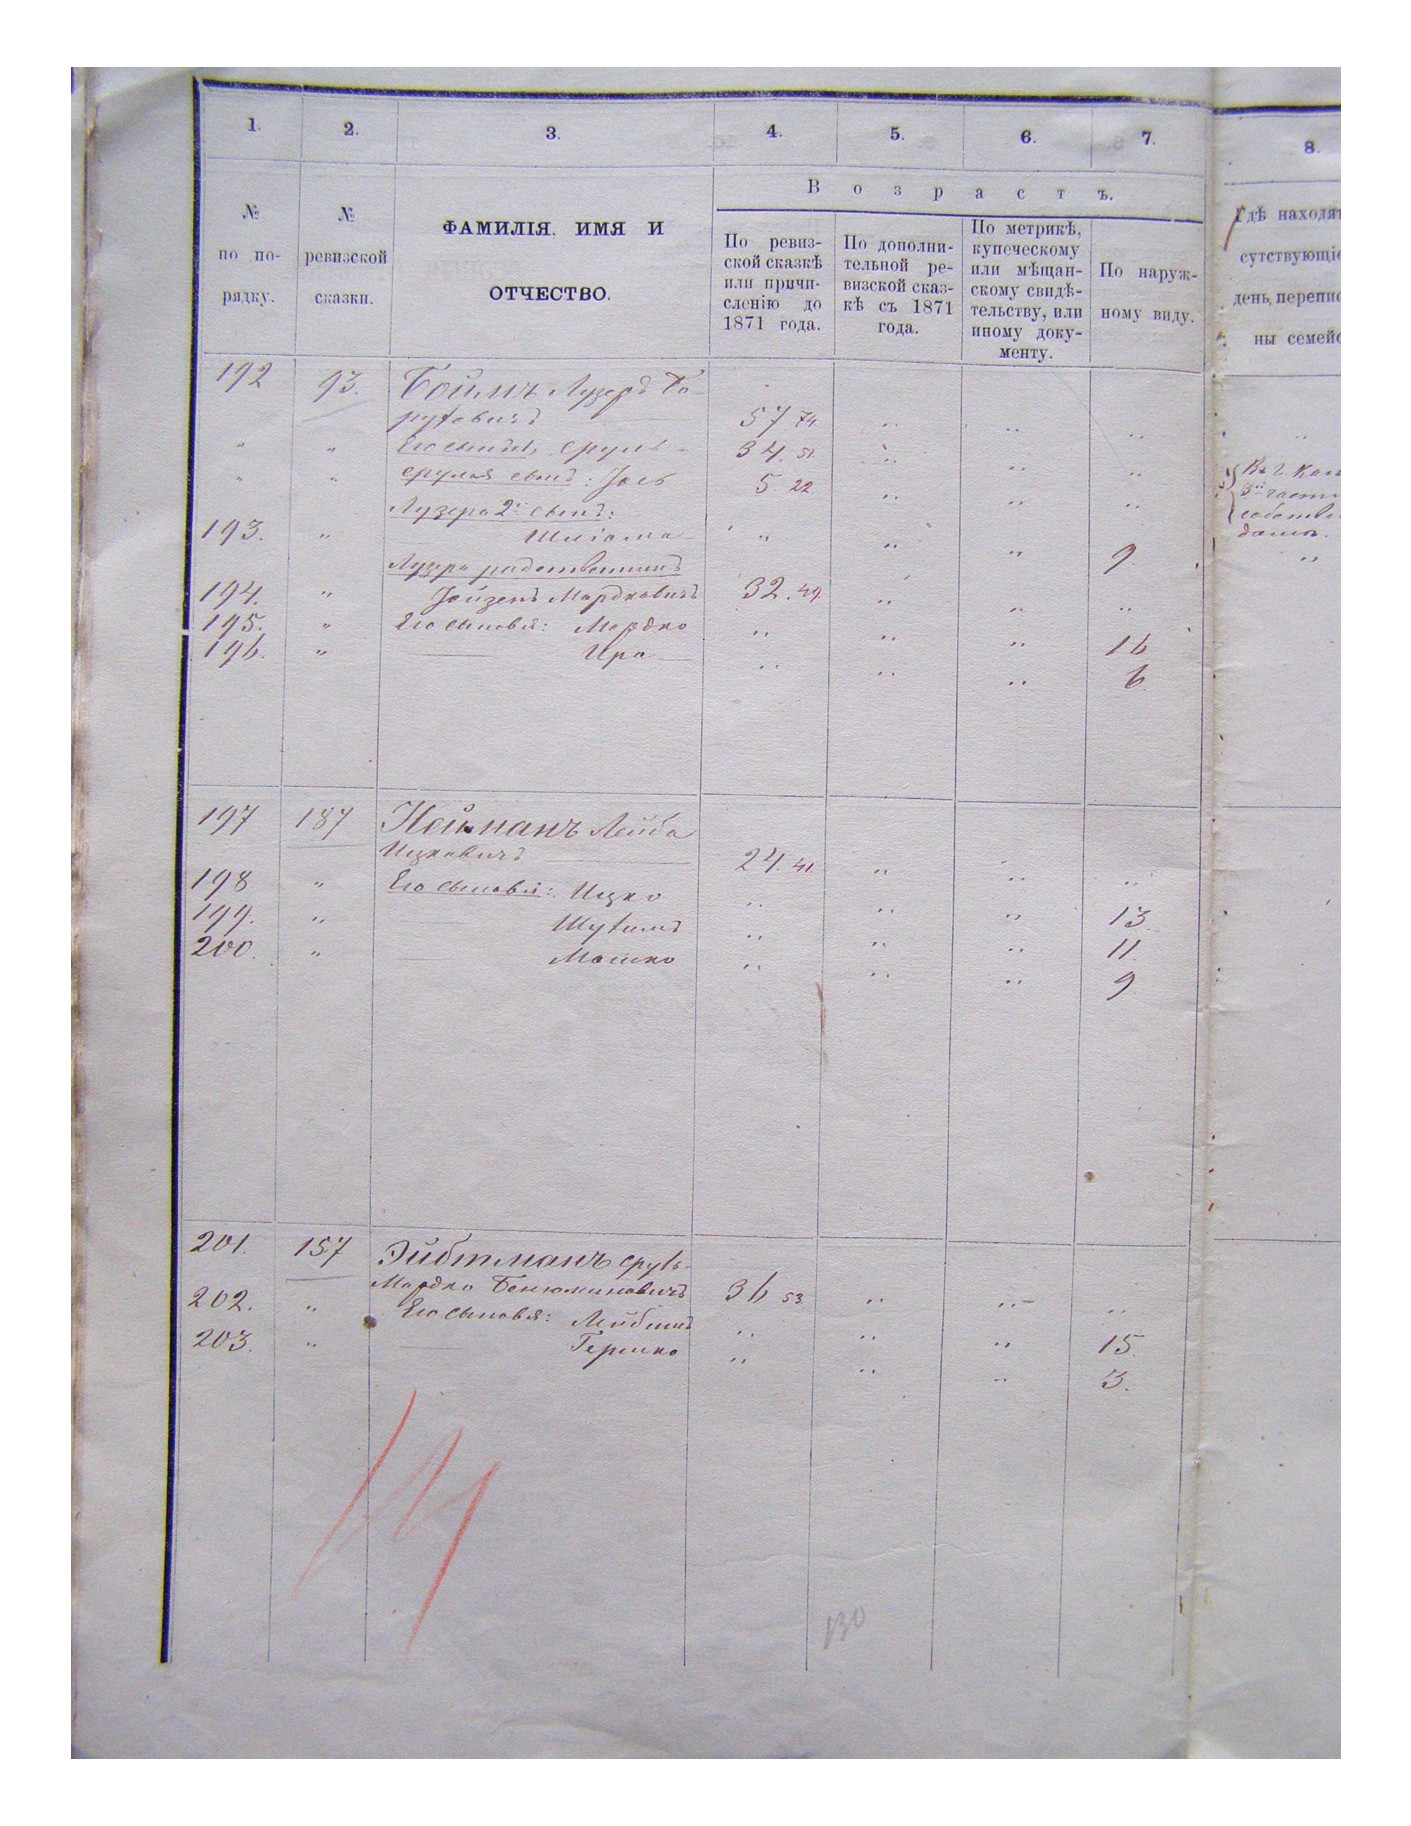 1. 2. 3. 4. 5. 6. 7. 8.
№ по порядку.
№ ревизской сказки.
ФАМИЛІЯ, ИМЯ И
ОТЧЕСТВО.
Возрастъ.
По ревиз-
ской сказкѣ
или причи-
сленію до
1871 года.
По дополни-
тельной ре-
визской сказ-
кѣ съ 1871
года.
По метрикѣ,
купеческому
или мѣщан-
скому свидѣ-
тельству, или
иному доку-
менту.
По наруж-
ному виду.
Гдѣ находят
сутствующіе
день перепис
ны семейс
192 93. Боймъ Лузеръ Бо-
руховичъ 57 74 „ „ „
„ „ Его сынъ Сруль 34. 51. „ „ „
„ „ Сруля сынъ: Іось 5. 22. „ „ „
Лузера 2й сынъ:
193. „ Шліома „ „ „ 9
Лузера родственникъ
194. „ Мардковичъ 32. 49. „ „ „
195. „ Его сыновья: Мордко „ „ „ 16
196. „ Ира „ „ „ 6.
Въ г.
3й части
собстве
домѣ.
197 187 Нейманъ Лейба
Ицковичъ 24. 41. „ „ „
198 „ Его сыновья: Ицко „ „ „ 13.
199. „ Шухимъ „ „ „ 11.
200. „ Мошко „ „ „ 9
201. 157 Эйбтманъ Сруль-
Мордко Бенюминовичъ 36 53 „ „ „
202. „ Его сыновья: Лейбишъ „ „ „ 15.
203. „ Гершко „ „ „ 3.
130